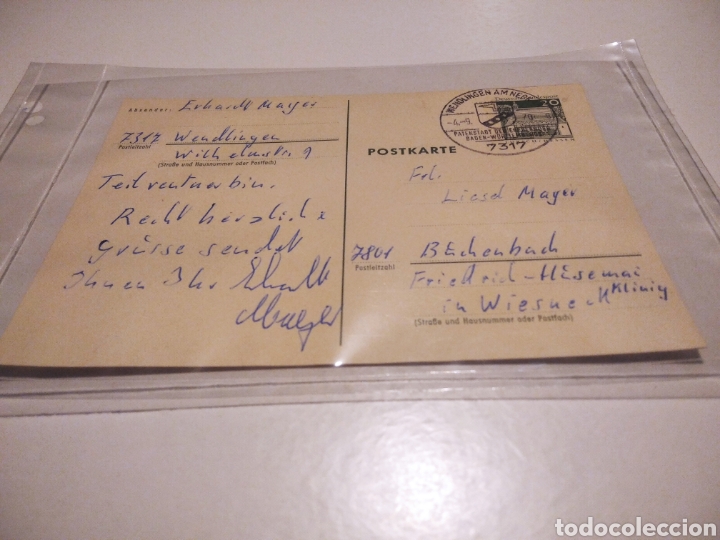 Absender: Erhardt Mayer
7317 Wendlingen
Postleitzahl
Wilhelmstr. 9
(Straße und Hausnummer oder Postfach)
Teilrentner bin.
Recht herzliche
Grüsse sendet
Ihnen Ihr Erhardt
Mayer
POSTKARTE
WENDLINGEN AM NECKAR
-4.-9.
PATENSTADT DER
BADEN-WÜRTT
7317
20
Frl.
Liesel Mayer
7801 Buchenbach
Postleitzahl
Friedrich-Husemann
Klinig
in Wiesneck
(Straße und Hausnummer oder Postfach)
todocoleccion